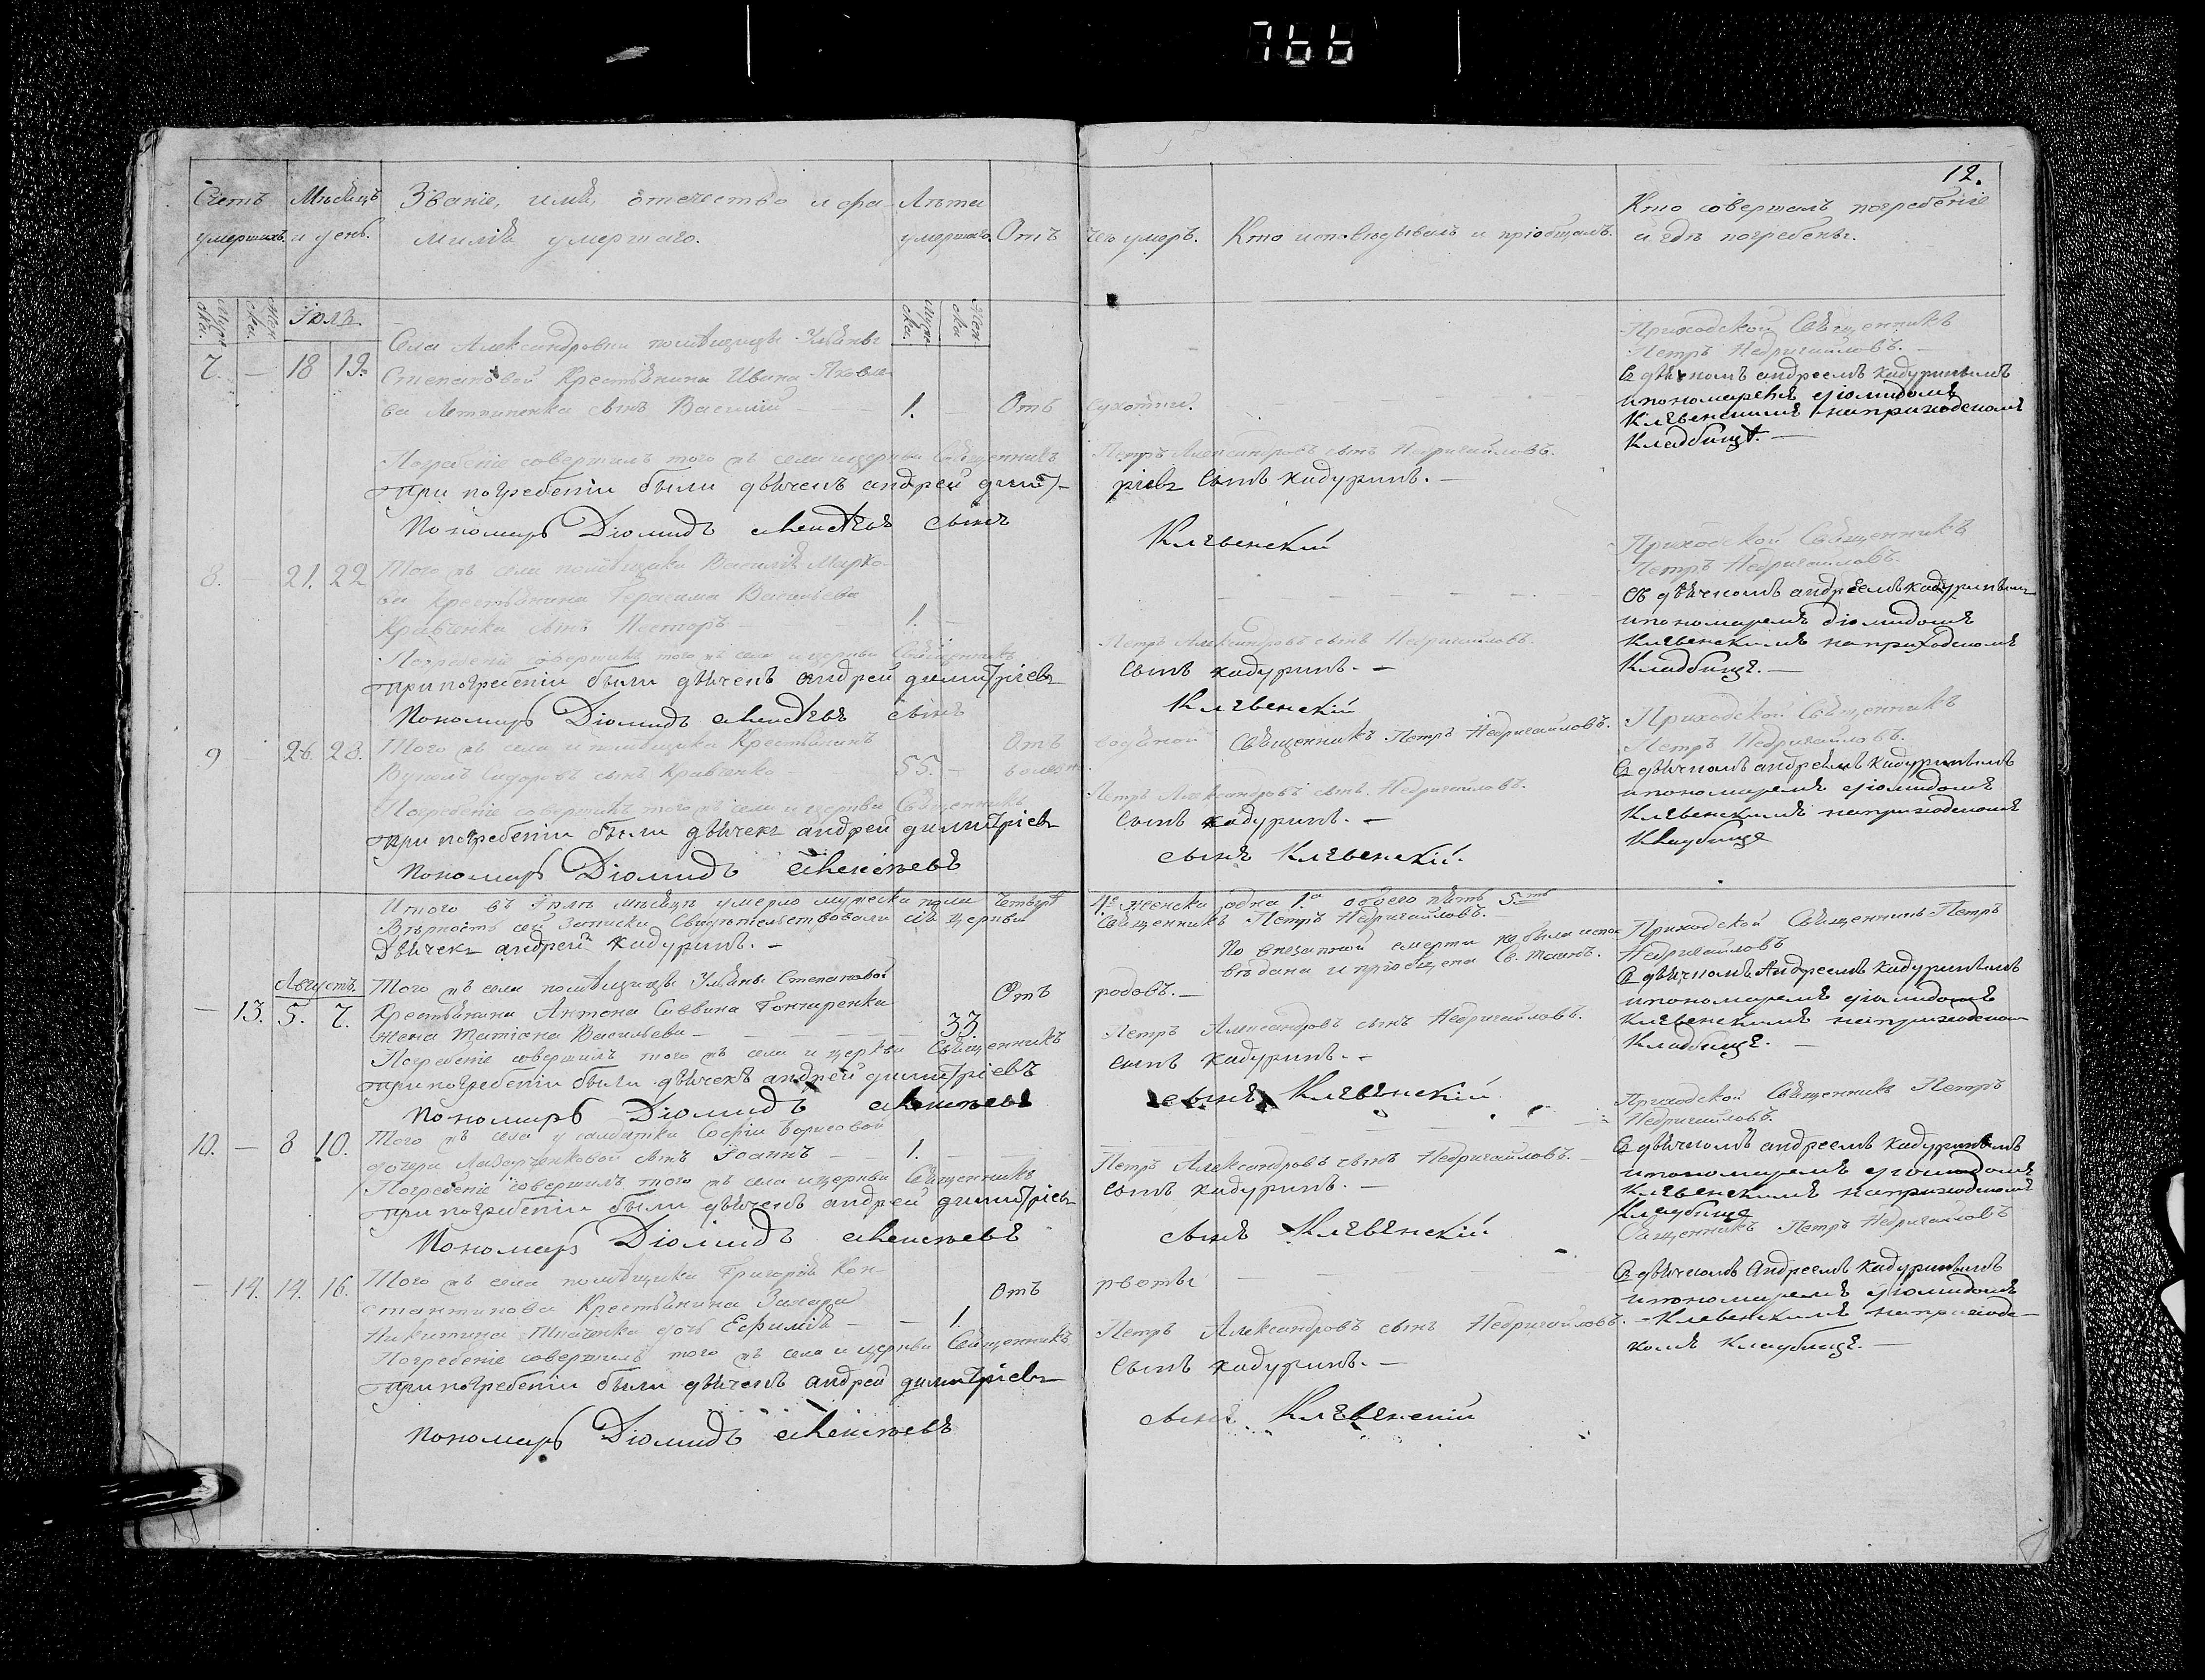 766
12.
Счетъ умершихъ.
Мѣсяцъ и день.
Званіе, имя, отечество и фамилія умершаго.
Лѣта умершаго
Отъ чего умеръ.
Кто исповѣдывалъ и пріобщалъ.
Кто совершалъ погребеніе и гдѣ погребены.
Муж ска. Жен ска.
Іюль.
Муж ска. Жен ска
7. — 18 19.
Села Александровки помѣщицы Ульяны
Степановой Крестьянина Ивана Яковле-
ва сынъ Василій — 1. Отъ сухотки.
Приходской Священникъ
Петръ Недригайловъ.
Съ дьячкомъ андреемъ кадуринымъ
и пономаремъ діомидомъ
Клевенскимъ на приходскомъ
Кладбищѣ. —
Погребеніе совершилъ того жъ села и церкви Священникъ Петръ Александровъ сынъ Недригайловъ.
При погребеніи были дьячекъ андрей димитріевъ сынъ кадуринъ. —
Пономарь Діомидъ сынъ Клевенскій
8. — 21. 22
Того жъ села помѣщика Василія Марко-
ва крестьянина Герасима Васильева
Кравченка сынъ Несторъ — 1. —
Приходской Священникъ
Петръ Недригайловъ.
Съ дьячкомъ андреемъ кадуринымъ
и пономаремъ діомидомъ
Клевенскимъ на приходскомъ
Кладбищѣ. —
Погребеніе совершилъ того жъ села и церкви Священникъ Петръ Александровъ сынъ Недригайловъ.
При погребеніи были дьячекъ андрей димитріевъ сынъ кадуринъ. —
Пономарь Діомидъ сынъ Клевенскій
9 — 26. 28.
Того жъ села и помѣщика Крестьянинъ
Сидоровъ сынъ Кравченко — 55. — Отъ водяной болезни
Священникъ Петръ Недригайловъ.
Приходской Священникъ
Петръ Недригайловъ.
Съ дьячкомъ андреемъ кадуринымъ
и пономаремъ діомидомъ
Клевенскимъ на приходскомъ
Кладбище
Погребеніе совершилъ того жъ села и церкви Священникъ Петръ Александровъ сынъ Недригайловъ.
При погребеніи были дьячекъ андрей димитріевъ сынъ кадуринъ. —
Пономарь Діомидъ сынъ Клевенскій.
Итого въ Іюлѣ мѣсяцѣ умерло мужеска пола четыре 4. женска одна 1а обоего пять 5ть
Вѣрность сей Записки Свидѣтельствовали тѣ церкви Священникъ Петръ Недригайловъ. —
Дьячекъ андрей кадуринъ. —
Августъ.
— 13. 5. 7.
Того жъ села помѣщицы Ульяны Степановой
Крестьянина Антона Саввина Гончаренка
жена Татіана Васильева — 33. Отъ родовъ. —
По внезапной смерти не была испо-
вѣдана и пріобщена Св. Таинъ.
Приходской Священникъ Петръ
Недригайловъ
Съ дьячкомъ Андреемъ кадуринымъ
и пономаремъ діомидомъ
Клевенскимъ на приходском
Кладбище. —
Погребеніе совершилъ того жъ села и церкви Священникъ Петръ Александровъ сынъ Недригайловъ.
При погребеніи были дьячекъ андрей димитріевъ сынъ кадуринъ. —
Пономарь Діомидъ сынъ Клевенскій
10. — 8 10.
Того жъ села у салдатки Софіи Борисовой
дочери Лазарченковой сынъ Іоаннъ — 1.
Приходской Священникъ Петръ
Недригайловъ.
Съ дьячкомъ андреемъ кадуринымъ
и пономаремъ діомидомъ
Клевенскимъ на приходскомъ
Кладбище
Погребеніе совершилъ того жъ села и церкви Священникъ Петръ Александровъ сынъ Недригайловъ. —
При погребеніи были дьячекъ андрей димитріевъ сынъ кадуринъ. —
Пономарь Діомидъ сынъ Клевенскій
— 14. 14. 16.
Того жъ села помѣщика Григорія Кон-
стантинова Крестьянина Захара
Никитина Ткаченка дочь Ефимія — — 1. Отъ рвоты
Священникъ Петръ Недригайловъ
Съ дьячкомъ Андреемъ кадуринымъ
и пономаремъ діомидомъ
Клевенскимъ на приходс-
комъ Кладбище. —
Погребеніе совершилъ того жъ села и церкви Священникъ Петръ Александровъ сынъ Недригайловъ.
При погребеніи были дьячекъ андрей димитріевъ сынъ кадуринъ. —
Пономарь Діомидъ сынъ Клевенскій